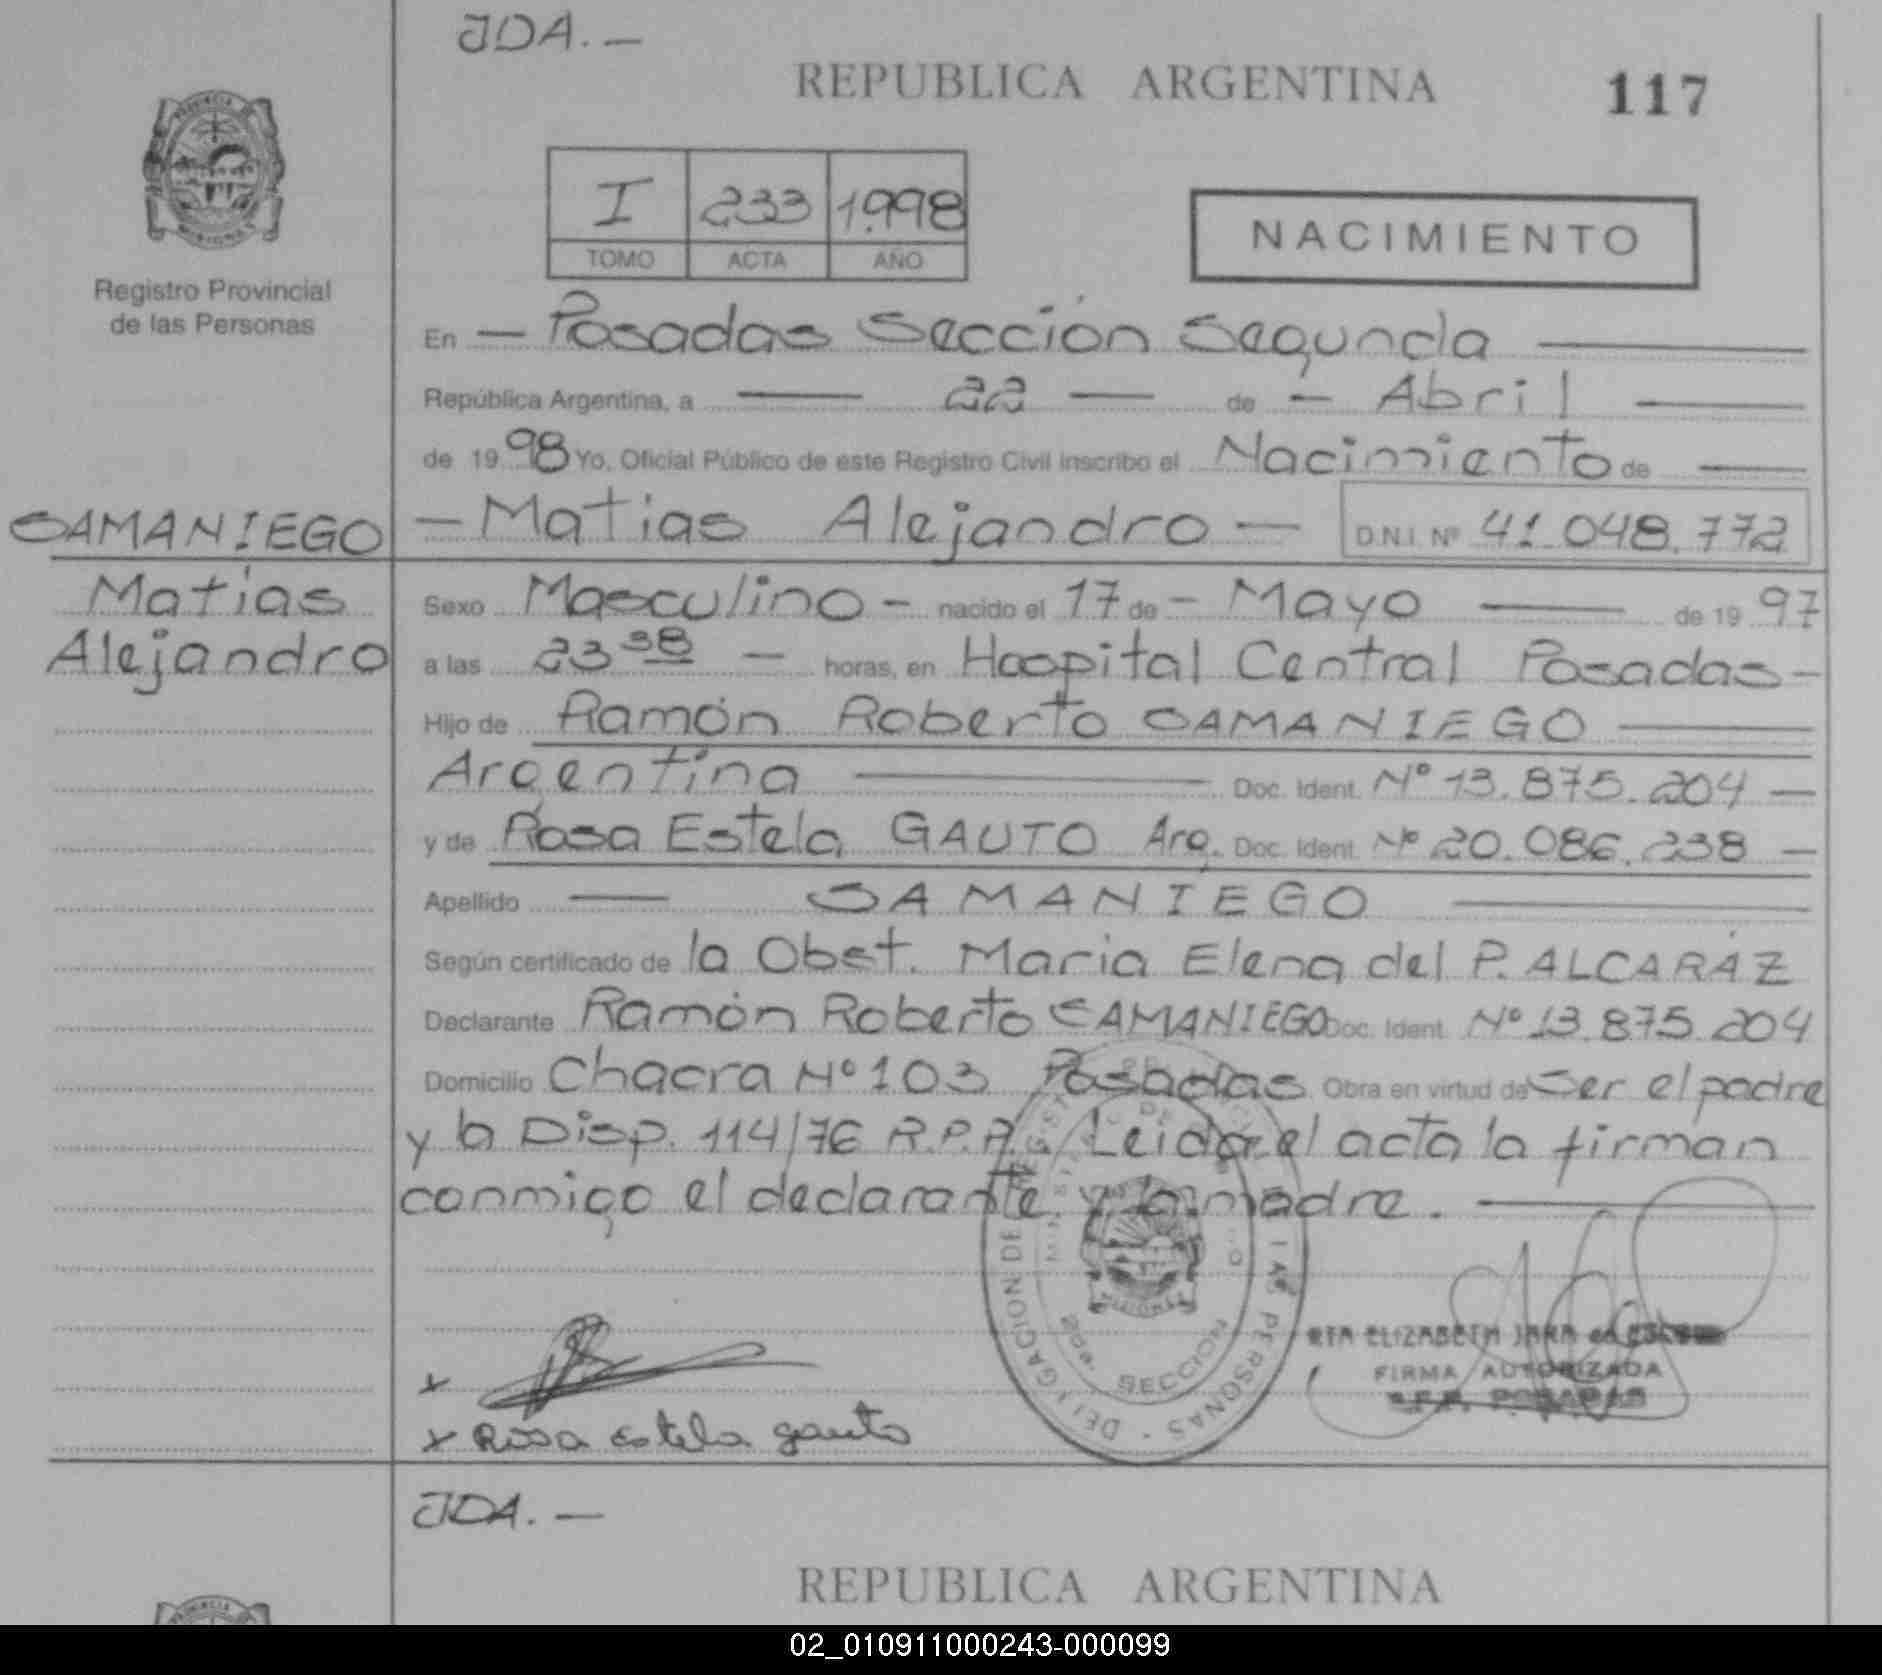 JDA.—
REPUBLICA ARGENTINA
117
I 233 1.998
TOMO ACTA AÑO
NACIMIENTO
Registro Provincial
de las Personas
En — Posadas Sección Segunda —
República Argentina, a — 22 — de — Abril —
de 1998 Yo, Oficial Público de este Registro Civil inscribo el Nacimiento de —
SAMANIEGO
Matias
Alejandro
— Matias Alejandro — D.N.I. Nº 41.048.772
Sexo Masculino - nacido el 17 de - Mayo — de 1997
a las 23 38 — horas, en Hospital Central Posadas -
Hijo de Ramón Roberto SAMANIEGO —
Argentina — Doc. Ident. Nº 13.875.204 —
y de Rosa Estela GAUTO Arg. Doc. Ident. Nº 20.086.238 —
Apellido — SAMANIEGO —
Según certificado de la Obst. Maria Elena del P. ALCARÁZ
Declarante Ramón Roberto SAMANIEGO Doc. Ident. Nº 13.875.204
Domicilio Chacra Nº 103 Posadas Obra en virtud de Ser el padre
y la Disp. 114/76 R.P.P. Leida el acta la firman
conmigo el declarante y la madre. —
DELEGACION DE PERSONAS
SECCION
MISIONES
ELIZABETH JARA
FIRMA AUTORIZADA
POSADAS
x
x Rosa Estela gauto
JDA.—
REPUBLICA ARGENTINA
02_010911000243-000099